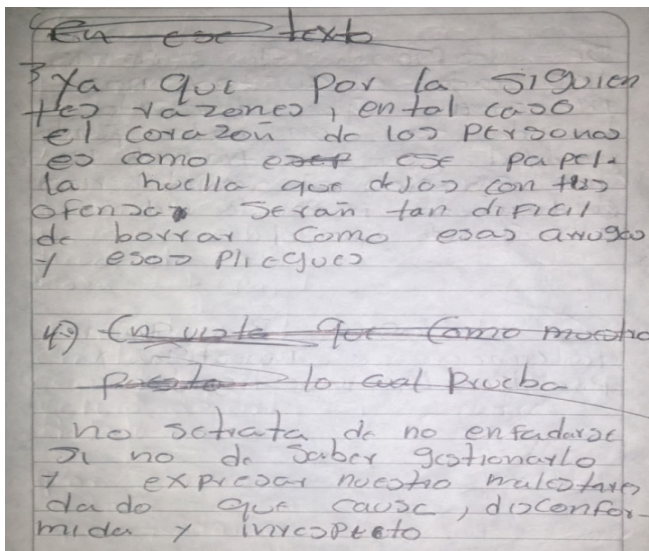 En ese texto
3 Ya que por la siguien
tes razones, en tal caso
el corazon de las personas
es como ese papel.
la huella que dejas con tus
ofensas seran tan dificil
de borrar como esas arrugas
y esos pliegues
4.) En vista que como muestra
puesto lo cual prueba
no setrata de no enfadarse
si no de saber gestionarlo
y expresar nuestro malestares
dado que cause, disconfor-
mida y irrespeto